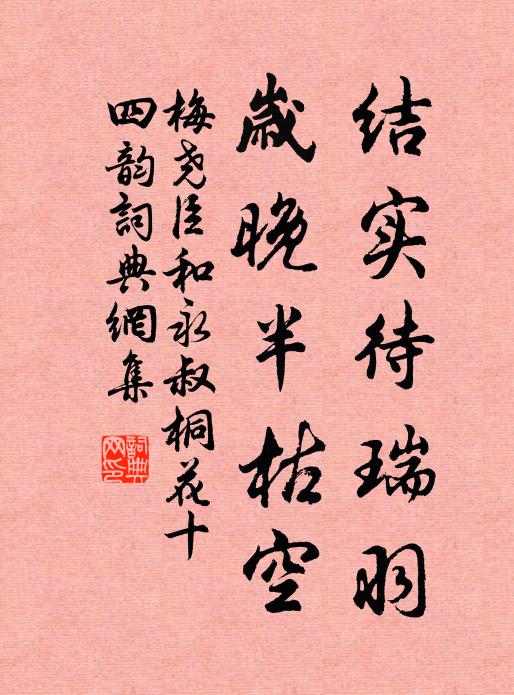 结实待瑞羽
歲晚半枯空
梅尧臣和永叔桐花十
四韵詞典網集
詞典网印